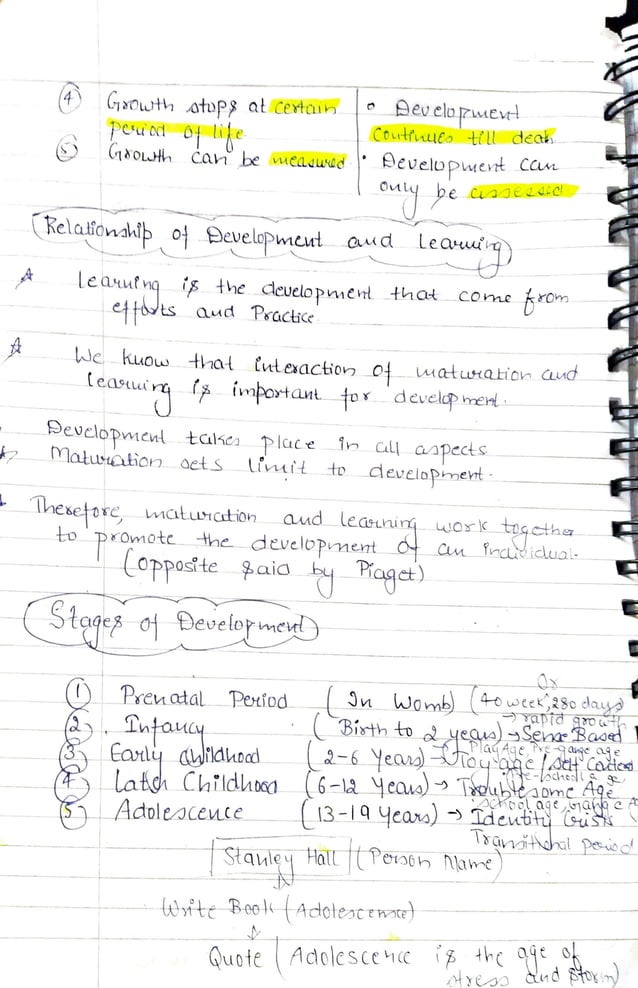 ④ Growth stops at certain period of life
• Development continues till death
⑤ Growth can be measured
• Development can only be assessed
Relationship of Development and Learning
Learning is the development that come from
efforts and Practice.
We know that interaction of maturation and
learning is important for development.
Development takes place in all aspects
Maturation sets limit to development.
Therefore, maturation and learning work together
to promote the development of an individual.
(opposite said by Piaget)
Stages of Development
① Prenatal Period (In Womb) (40 week, 280 days)
Or
② Infancy (Birth to 2 years) → Sense Based
→ rapid growth
③ Early Childhood (2-6 Years) → Toy age / Self Centered
Play Age, Pre-gang age
Pre-school age,
④ Later Childhood (6-12 Years) → Troublesome Age
School age, Gang
⑤ Adolescence (13-19 Years) → Identity Crisis
Transitional period
Stanley Hall (Person Name)
Write Book (Adolescense)
Quote (Adolescence is the age of
stress and storm)